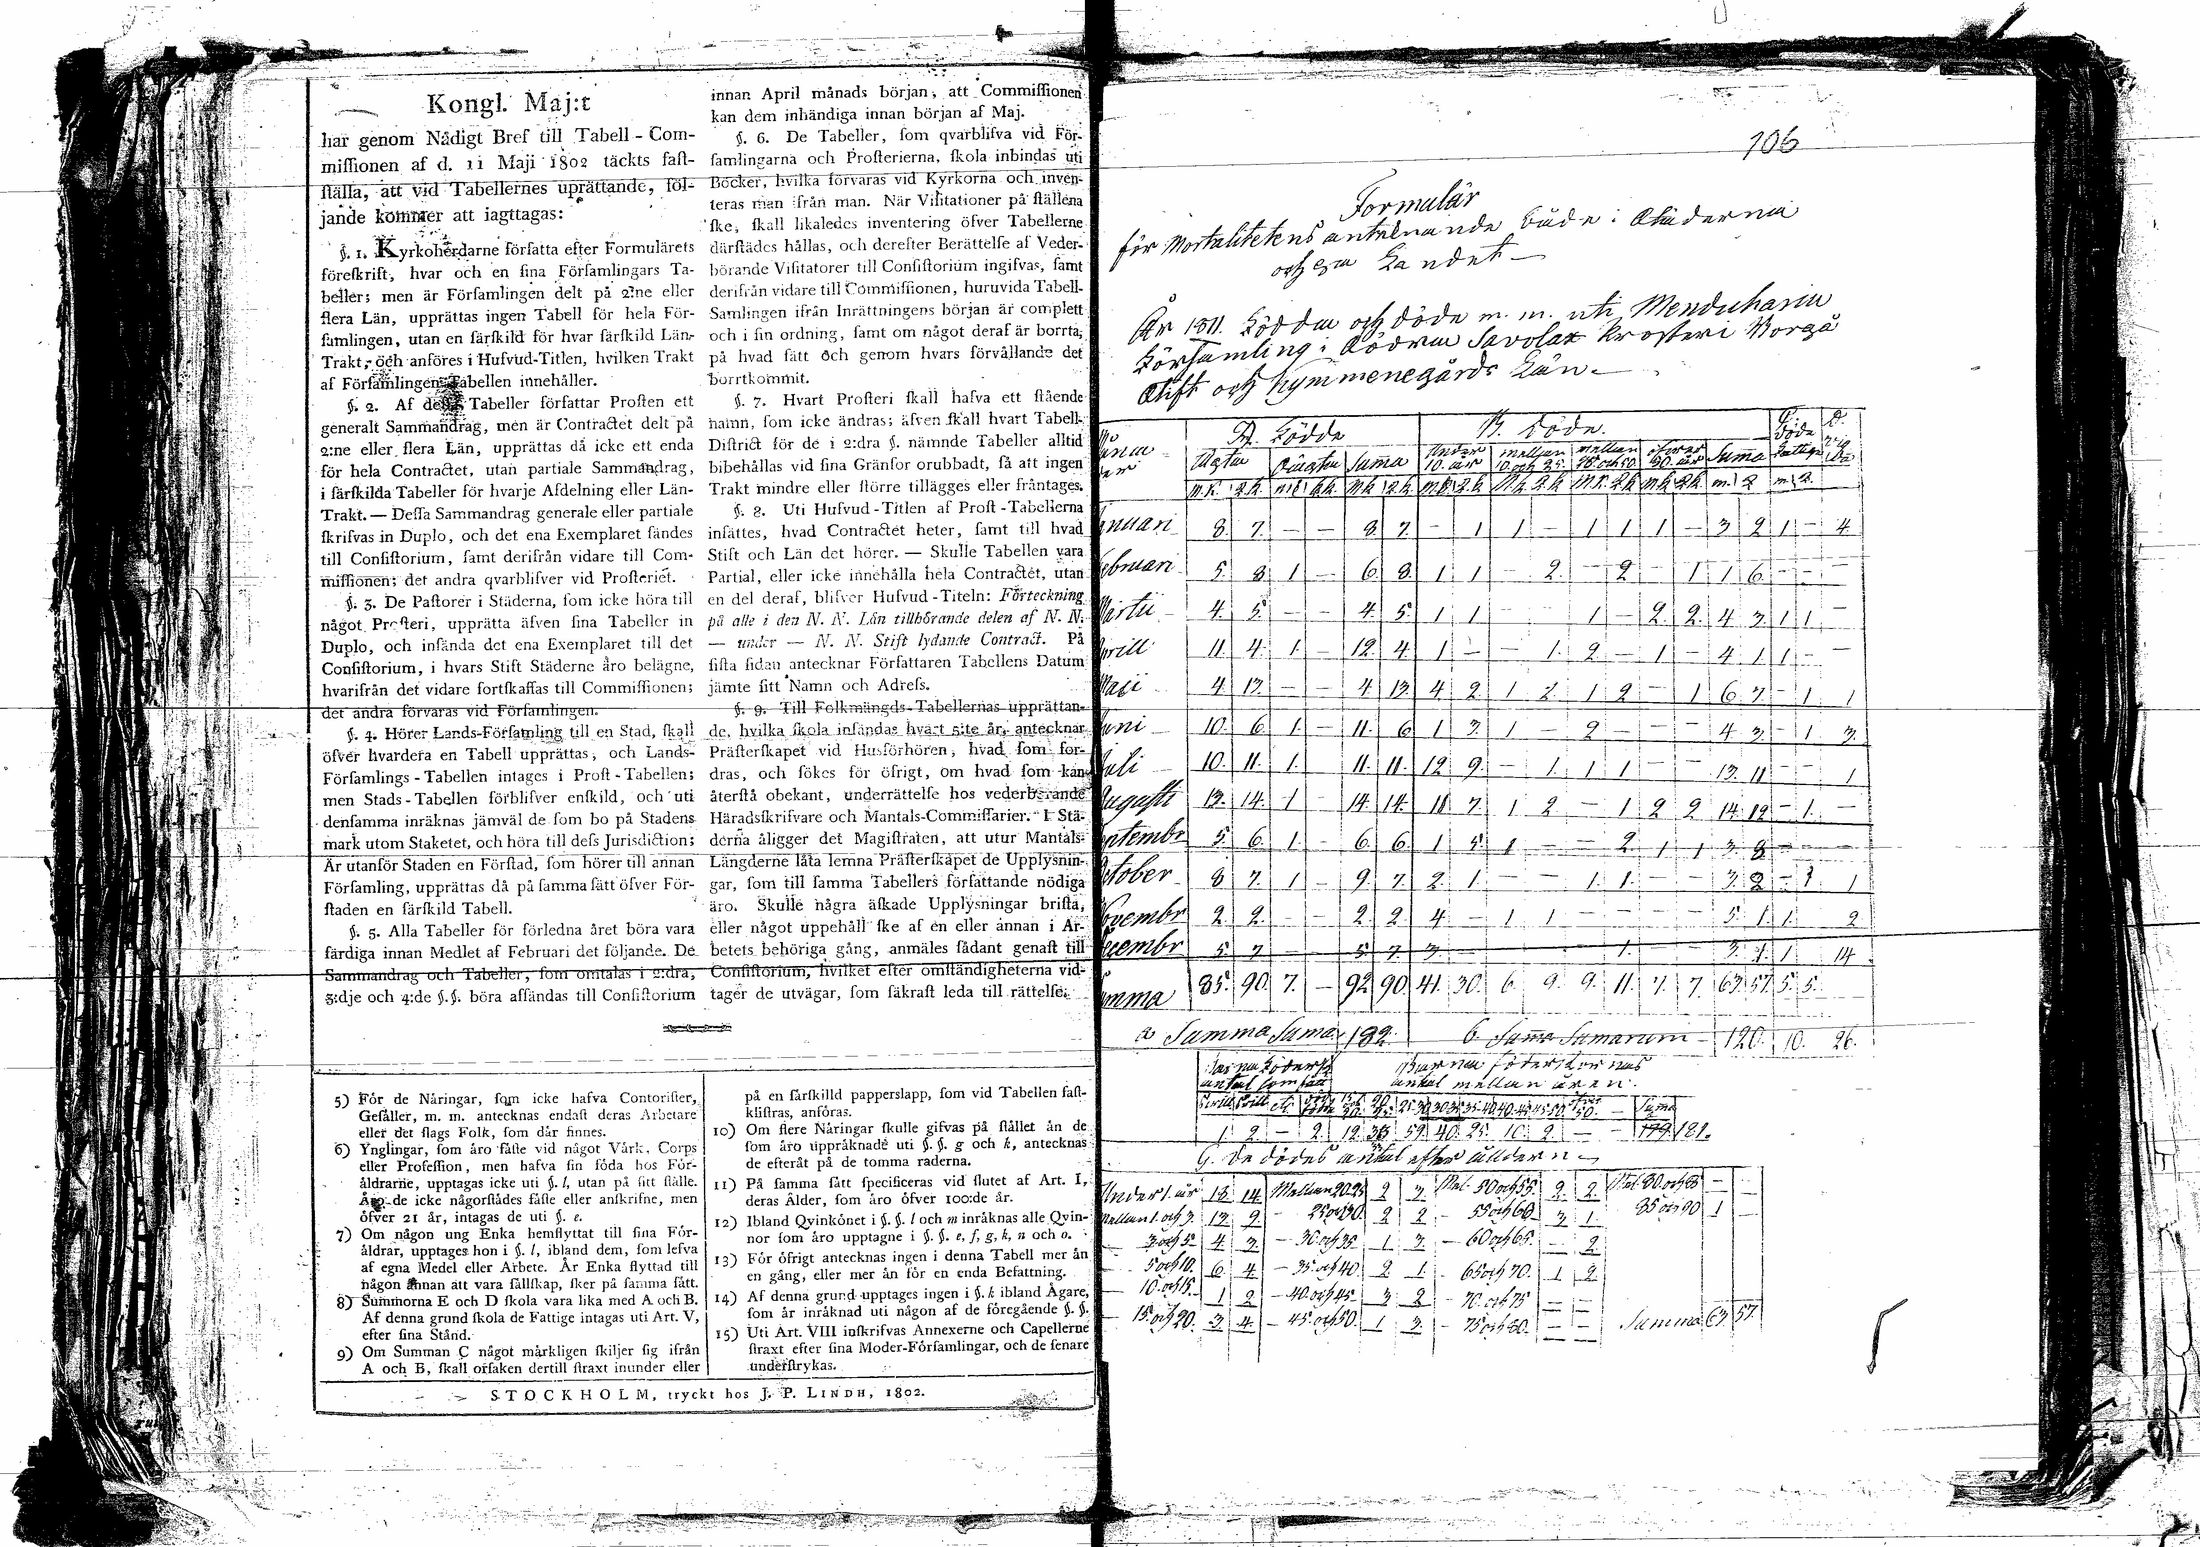 Kongl. Maj:t
har genom Nådigt Bref till Tabell-Com-
miſſionen af d. 11 Maji 1802 täckts faſt-
ſtälla, att vid Tabellernes uprättande, föl-
jande kommer att iagttagas:
§. 1. Kyrkoherdarne författa efter Formulärets
föreſkrift, hvar och en ſina Förſamlingars Ta-
beller; men är Förſamlingen delt på 2:ne eller
flera Län, upprättas ingen Tabell för hela För-
ſamlingen, utan en ſärſkild för hvar ſärſkild Län-
Trakt, och anföres i Hufvud-Titlen, hvilken Trakt
af Förſamlingen Tabellen innehåller.
§. 2. Af deſſa Tabeller författar Proſten ett
generalt Sammandrag, men är Contractet delt på
2:ne eller flera Län, upprättas då icke ett enda
för hela Contractet, utan partiale Sammandrag,
i ſärſkilda Tabeller för hvarje Afdelning eller Län-
Trakt. — Deſſa Sammandrag generale eller partiale
ſkrifvas in Duplo, och det ena Exemplaret ſändes
till Conſiſtorium, ſamt derifrån vidare till Com-
miſſionen; det andra qvarblifver vid Proſteriet.
§. 3. De Paſtorer i Städerna, ſom icke höra till
något Proſteri, upprätta äfven ſina Tabeller in
Duplo, och inſända det ena Exemplaret till det
Conſiſtorium, i hvars Stift Städerne äro belägne,
hvarifrån det vidare fortſkaffas till Commiſſionen;
det andra förvaras vid Förſamlingen.
§. 4. Hörer Lands-Förſamling till en Stad, ſkall
öfver hvardera en Tabell upprättas, och Lands-
Förſamlings-Tabellen intages i Proſt-Tabellen;
men Stads-Tabellen förblifver enſkild, och uti
denſamma inräknas jämväl de ſom bo på Stadens
mark utom Staketet, och höra till deſs Jurisdiction;
Är utanför Staden en Förſtad, ſom hörer till annan
Förſamling, upprättas då på ſamma ſätt öfver För-
ſtaden en ſärſkild Tabell.
§. 5. Alla Tabeller för förledna året böra vara
färdiga innan Medlet af Februari det följande. De
Sammandrag och Tabeller, ſom omtalas i 2:dra,
3:dje och 4:de §.§. böra affändas till Conſiſtorium
innan April månads början, att Commiſſionen
kan dem inhändiga innan början af Maj.
§. 6. De Tabeller, ſom qvarblifva vid För-
ſamlingarna och Proſterierna, ſkola inbindas uti
Böcker, hvilka förvaras vid Kyrkorna och inven-
teras man ifrån man. När Viſitationer på ſtällena
ſke, ſkall likaledes inventering öfver Tabellerne
därſtädes hållas, och derefter Berättelſe af Veder-
börande Viſitatorer till Conſiſtorium ingifvas, ſamt
derifrån vidare till Commiſſionen, huruvida Tabell-
Samlingen ifrån Inrättningens början är complett
och i ſin ordning, ſamt om något deraf är borrta,
på hvad ſätt och genom hvars förvållande det
borrtkommit.
§. 7. Hvart Proſteri ſkall hafva ett ſtående
namn, ſom icke ändras; äfven ſkall hvart Tabell-
Diſtrict för de i 2:dra §. nämnde Tabeller alltid
bibehållas vid ſina Gränſor orubbadt, ſå att ingen
Trakt mindre eller ſtörre tillägges eller fråntages.
§. 8. Uti Hufvud-Titlen af Proſt-Tabellerna
inſättes, hvad Contractet heter, ſamt till hvad
Stift och Län det hörer. — Skulle Tabellen vara
Partial, eller icke innehålla hela Contractet, utan
en del deraf, blifver Hufvud-Titeln: Förteckning
på alle i den N. N. Län tillhörande delen af N. N.
— under — N. N. Stift lydande Contract. På
ſiſta ſidan antecknar Författaren Tabellens Datum
jämte ſitt Namn och Adreſs.
§. 9. Till Folkmängds-Tabellernas upprättan-
de, hvilka ſkola inſändas hvart 5:te år, antecknar
Präſterſkapet vid Husförhören, hvad ſom for-
dras, och ſökes för öfrigt, om hvad ſom kan
återſtå obekant, underrättelſe hos vederbörande
Häradsſkrifvare och Mantals-Commiſſarier. I Stä-
derna åligger det Magiſtraten, att utur Mantals-
Längderne låta lemna Präſterſkapet de Upplysnin-
gar, ſom till ſamma Tabellers författande nödiga
äro. Skulle några äſkade Upplysningar briſta,
eller något uppehåll ſke af en eller annan i Ar-
betets behöriga gång, anmäles ſådant genaſt till
Conſiſtorium, hvilket efter omſtändigheterna vid-
tager de utvägar, ſom ſäkraſt leda till rättelſe.
5) För de Näringar, ſom icke hafva Contoriſter,
Geſäller, m. m. antecknas endaſt deras Arbetare
eller det ſlags Folk, ſom där finnes.
6) Ynglingar, ſom äro fäſte vid något Värk, Corps
eller Profeſſion, men hafva ſin föda hos För-
äldrarne, upptagas icke uti §. l, utan på ſitt ſtälle.
Äro de icke någorſtädes fäſte eller anſkrifne, men
öfver 21 år, intagas de uti §. e.
7) Om någon ung Enka hemflyttat till ſina För-
äldrar, upptages hon i §. l, ibland dem, ſom lefva
af egna Medel eller Arbete. Är Enka flyttad till
någon annan att vara ſällſkap, ſker på ſamma ſätt.
8) Summorna E och D ſkola vara lika med A och B.
Af denna grund ſkola de Fattige intagas uti Art. V,
efter ſina Stånd.
9) Om Summan C något märkligen ſkiljer ſig ifrån
A och B, ſkall orſaken dertill ſtraxt inunder eller
på en ſärſkilld papperslapp, ſom vid Tabellen faſt-
kliſtras, anföras.
10) Om flere Näringar ſkulle gifvas på ſtället än de
ſom äro uppräknade uti §.§. g och k, antecknas
de efteråt på de tomma raderna.
11) På ſamma ſätt ſpecificeras vid ſlutet af Art. I,
deras Ålder, ſom äro öfver 100:de år.
12) Ibland Qvinkönet i §.§. l och m inräknas alle Qvin-
nor ſom äro upptagne i §.§. e, f, g, k, n och o.
13) För öfrigt antecknas ingen i denna Tabell mer än
en gång, eller mer än för en enda Befattning.
14) Af denna grund upptages ingen i §. k ibland Ägare,
ſom är inräknad uti någon af de föregående §.§.
15) Uti Art. VIII inſkrifvas Annexerne och Capellerne
ſtraxt efter ſina Moder-Förſamlingar, och de ſenare
underſtrykas.
STOCKHOLM, tryckt hos J. P. LINDH, 1802.
106
Formulär
för Mortalitetens antecknande både i Städerna
och på Landet
År 1811. Födda och Döde m. m. uti Menduharju
Församling i Södra Savolax Prosteri Borgå
Stift och Kymmenegårds Län.
A. Födde B. Döde.
Ägta Oägta Summa Under 10. år mellan 10 och 25. mellan 25 och 50. öfver 50. år Suma
nuari 8. 7. — — 8. 7. — 1 1 — 1 1 1 — 3 2 1 — 4.
ebruari 5. 8. 1 — 6. 8. 1 1 — 2. — 2 — 1 1 6. — — —
Martii 4. 5. — — 4. 5. 1 1 — — 1 — 2. 2. 4. 3. 1 1 —
prill 11. 4. 1. — 12. 4. 1 — — 1. 2. — 1 — 4. 1 1 — —
Maji 4. 13. — — 4. 13. 4 2. 1 2. 1 2 — 1 6. 7 — 1 1
uni 10. 6. 1 — 11. 6. 1 3. 1 — 2 — — — 4. 3. — 1. 3.
uli 10. 11. 1. 11. 11. 12. 9. — 1. 1. 1. — — 13. 11 — — 1
ugusti 13. 14. 1 — 14. 14. 11 7. 1 2 — 1 2 2 14. 12 — 1. —
eptembr 5. 6. 1. — 6. 6. 1 5. 1 — — 2. 1 1 3. 8 — — —
ctober 8 7. 1 — 9. 7. 2. 1. — — 1. 1. — — 3. 2 — 1 1
ovembr 2. 2. — — 2. 2. 4. — 1 1 — — — — 5. 1. 1. 2
ecembr 5. 7 — 5. 7 3. 1. 1. 14
umma 85. 90. 7. — 92 90. 41. 30. 6. 9. 9. 11. 7. 7. 63. 57. 5. 5.
a Summa Suma 182. b Suma Sumarum — 120. 10. 26.
Barna Föderskornas
antal mellan åren.
1. 2. — 2. 12 36 59. 40. 25. 10. 2. — — 179. 181.
G. De dödes antal efter åldern
Under 1. år 13. 14. Mellan 20. 25 2 3. Mel. 50 och 55. 2. 2. Mel. 80 och 85 — —
Mellan 1. och 3. 13. 9. — 25 och 30. 2 2 — 55 och 60. 3. 1. 85 och 90 1 —
— 3 och 5. 4 3. — 30 och 35 1 3. — 60 och 65. — 2.
— 5 och 10. 6. 4. — 35 och 40. 2 1. — 65 och 70. 1 2.
— 10 och 15. 1 2 — 40 och 45. 3 2 — 70. och 75 — —
— 15. och 20. 3. 4. — 45 och 50. 1 3. — 75 och 80. — — Summa 63. 57.